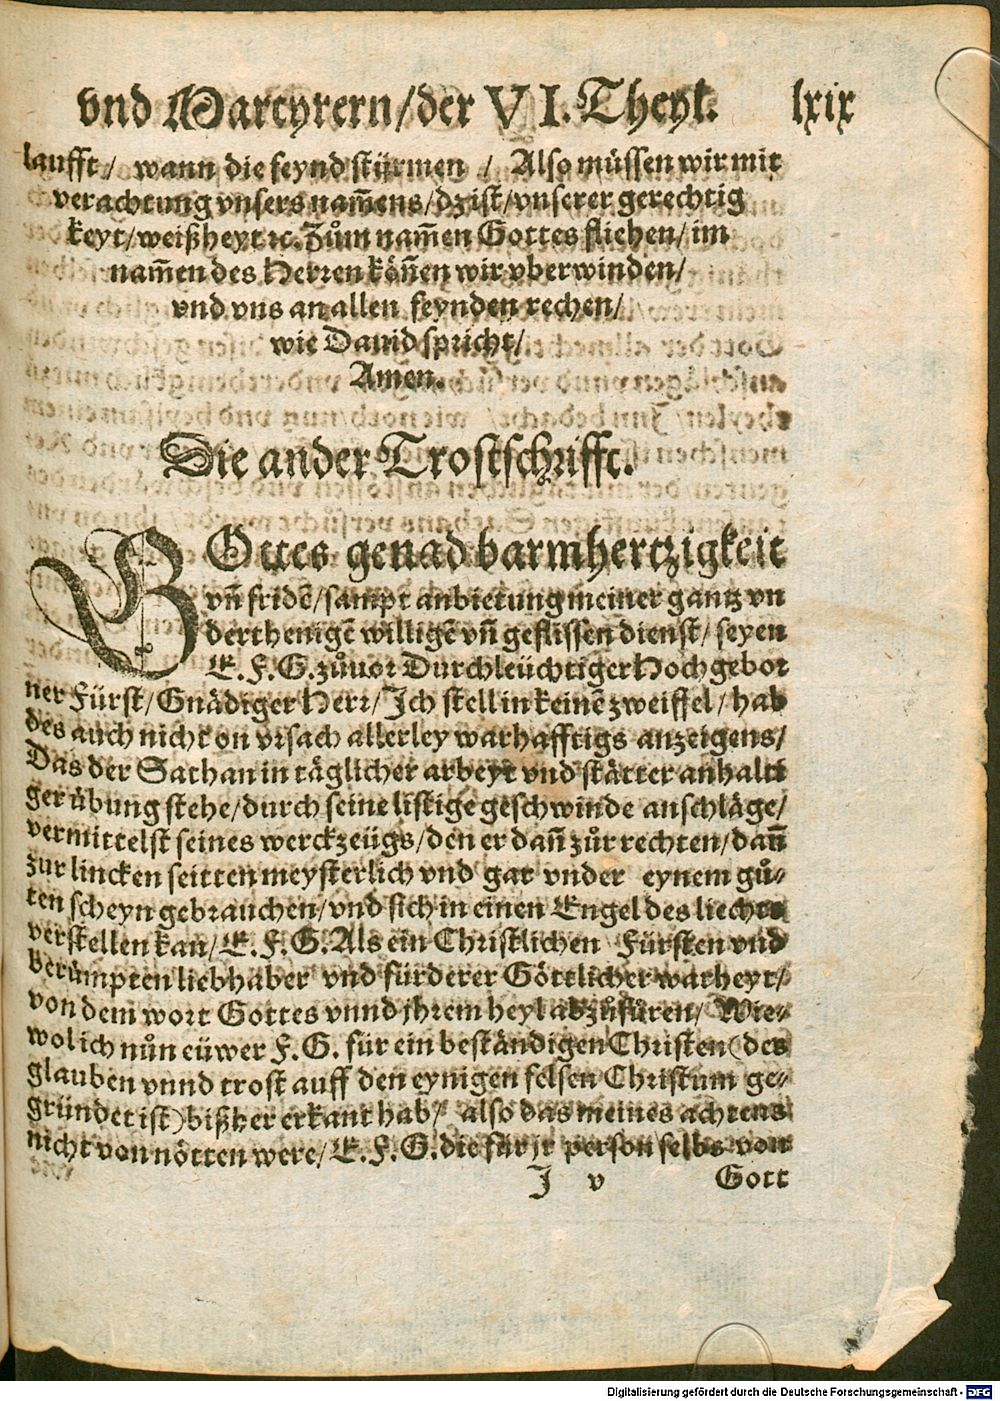 vnd Martyrern/der VI. Theyl. lxix
laufft/ wann die feynd stürmen / Also müssen wir mit
verachtung vnsers nam̄ens/dz ist/vnserer gerechtig
keyt/weißheyt ꝛc. Zům nam̄en Gottes fliehen/im
nam̄en des Herren kön̄en wir vberwinden/
vnd vns an allen feynden rechen/
wie Dauid spricht/
Amen.
Die ander Trostschrifft.
GOttes genad barmhertzigkeit
vn̄ fridē/sampt anbietung meiner gantz vn
derthenigē willigē vn̄ geflissen dienst/ seyen
E. F. G. zůuor Durchleüchtiger Hochgebor
ner Fürst/Gnädiger Herr/Ich stell in keinē zweiffel/hab
des auch nicht on vrsach allerley warhafftigs anzeigens/
Das der Sathan in täglicher arbeyt vnd stätter anhalti
ger übung stehe/durch seine listige geschwinde anschläge/
vermittelst seines werckzeügs/den er dan̄ zůr rechten/dan̄
zur lincken seitten meysterlich vnd gar vnder eynem gů-
ten scheyn gebrauchen/vnd sich in einen Engel des liechts
verstellen kan/E. F. G. Als ein Christlichen Fürsten vnd
berümpten liebhaber vnd fürderer Göttlicher warheyt/
von dem wort Gottes vnnd jhrem heyl abzůfüren/ Wie-
wol ich nůn eüwer F. G. für ein beständigen Christen (des
glauben vnnd trost auff den eynigen felsen Christum ge-
gründet ist) bißher erkant hab/ also das meines achtens
nicht von nötten were/E. F. G. die für jr person selbs von
J v Gott
Digitalisierung gefördert durch die Deutsche Forschungsgemeinschaft - DFG